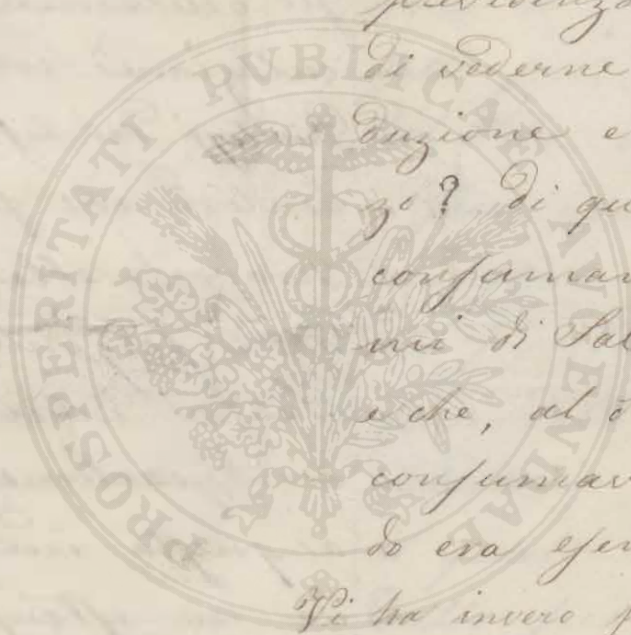 PROSPERITATI PVBLICAE AVGENDAE
previdenza
di vederne
duzione e
zo? di qu
confumar
mi di Sal
e che, al
confumar
do era efer
Vi ha invero